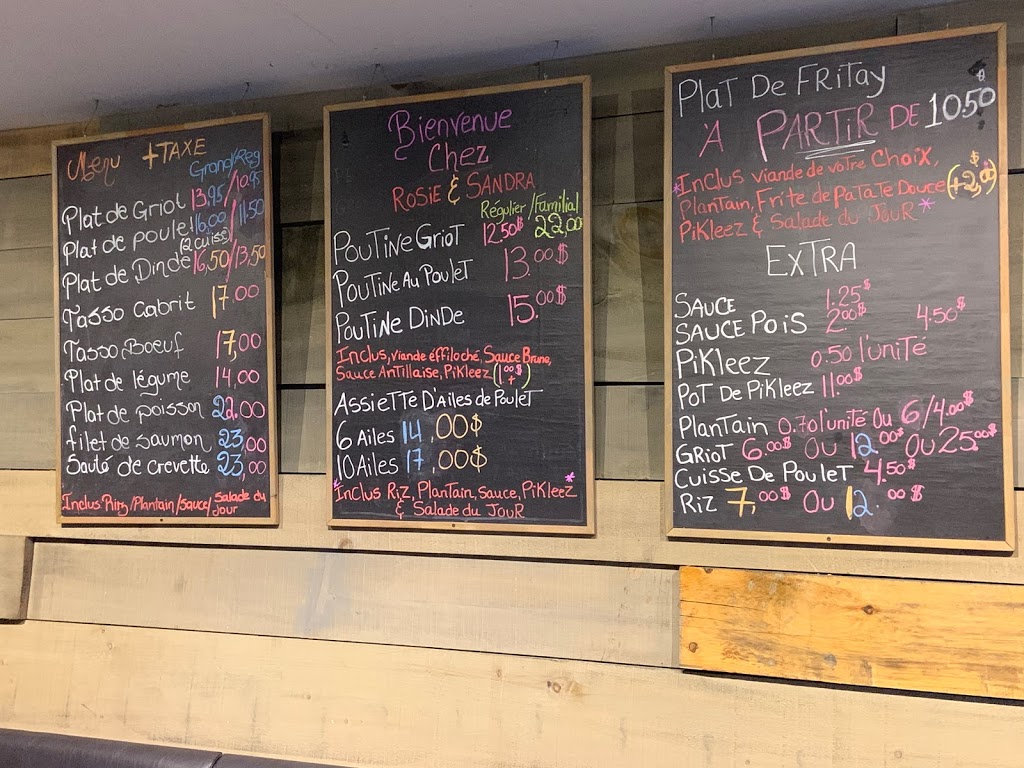 Menu + TAXE
Grand/Reg
Plat de Griot 13,95/10.95
Plat de poulet 16,00/11,50
(2 cuiss)
Plat de Dinde 16,50/13,50
Tasso Cabrit 17,00
Tasso Boeuf 17,00
Plat de légume 14,00
Plat de poisson 22,00
filet de saumon 23,00
Sauté de crevette 23,00
Inclus Ritz/Plantain/sauce/Salade du
Jour
Bienvenue
Chez
ROSIE & SANDRA
Régulier/Familial
POUTINE GRIOT 12.50$ 22,00
POUTINE AU POULET 13.00$
POUTINE DINDE 15.00$
Inclus, viande éffiloché, Sauce Brune,
Sauce Antillaise, Pikleez (1.00$ +)
ASSIETTE D'AILES DE POULET
6 Ailes 14,00$
10 Ailes 17,00$
*Inclus Riz, Plantain, Sauce, Pikleez*
& Salade du JouR
PlaT De FRiTay
A PARTiR DE 10.50$
*Inclus viande de votre Choix,
Plantain, Frite de Patate Douce (+2,00$)
Pikleez & Salade du JouR*
EXTRA
SAUCE 1.25$
SAUCE POIS 2.00$ 4.50$
PiKleez 0.50 l'unité
POT DE PiKLEEZ 11.00$
PlanTain 0.70 l'unité Ou 6/4.00$
GRioT 6.00$ OU 12.00$ OU 25.00$
CUISSE DE POULET 4.50$
Riz 7,00$ OU 12.00$